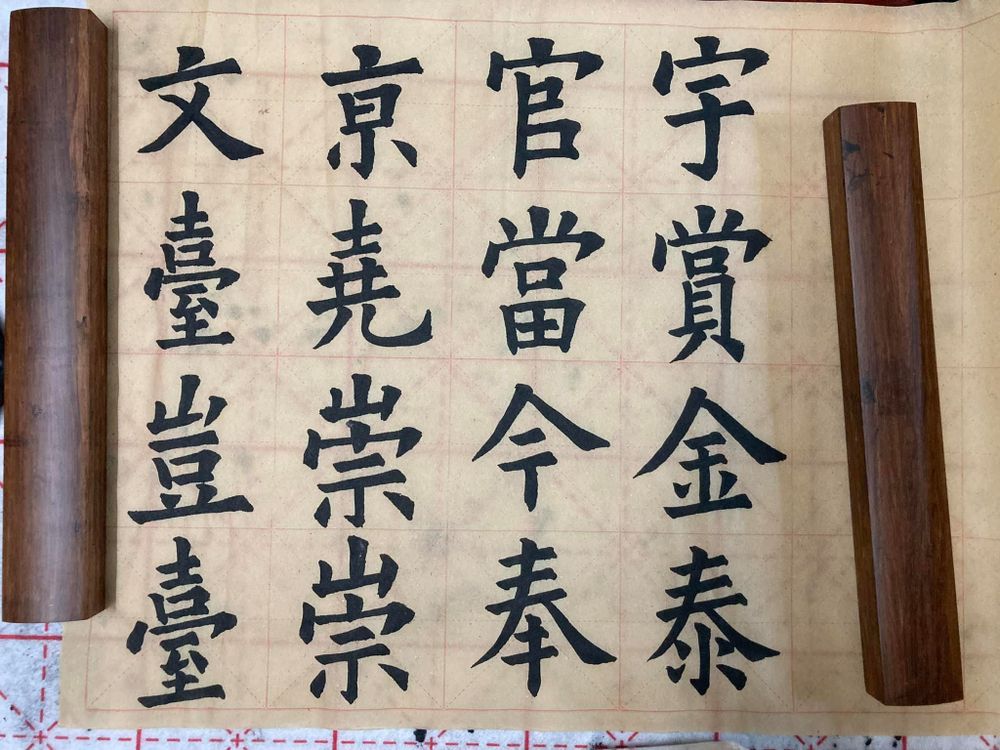 宇賞金泰
官當今奉
亰堯崇崇
文臺豈臺